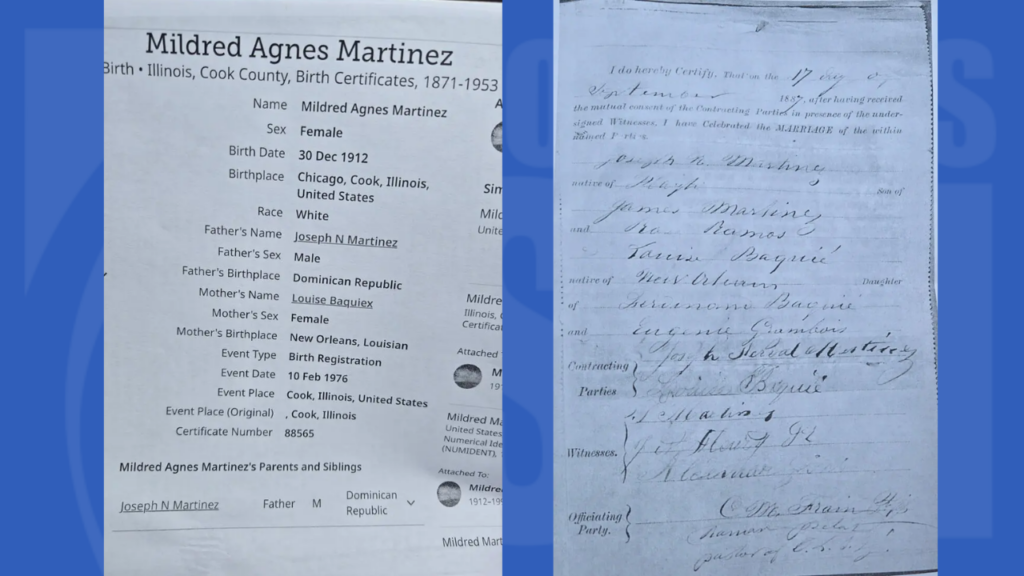 Mildred Agnes Martinez
Birth • Illinois, Cook County, Birth Certificates, 1871-1953
Name Mildred Agnes Martinez
Sex Female
Birth Date 30 Dec 1912
Birthplace Chicago, Cook, Illinois,
United States
Race White
Father's Name Joseph N Martinez
Father's Sex Male
Father's Birthplace Dominican Republic
Mother's Name Louise Baquiex
Mother's Sex Female
Mother's Birthplace New Orleans, Louisian
Event Type Birth Registration
Event Date 10 Feb 1976
Event Place Cook, Illinois, United States
Event Place (Original) , Cook, Illinois
Certificate Number 88565
Mildred Agnes Martinez's Parents and Siblings
Joseph N Martinez Father M Dominican
Republic
A
Sim
Mild
Unite
Mildre
Illinois, C
Certifica
Attached
M
19
Mildred Ma
United States
Numerical Ide
(NUMIDENT),
Attached To:
Mildre
1912-19
Mildred Mart
I do hereby Certify, That on the 17 day of
September 1887, after having received
the mutual consent of the Contracting Parties in presence of the under-
signed Witnesses, I have Celebrated the MARRIAGE of the within
named
Joseph N Martinez
native of Hayti Son of
James Martinez
and Ramos
Louise Baquié
native of New Orleans Daughter
of Ferdinand Baquié
and Eugenie Grambois
Contracting Joseph Martinez
Parties Louise Baquié
Martinez
Witnesses.
Officiating
Party.
pastor of